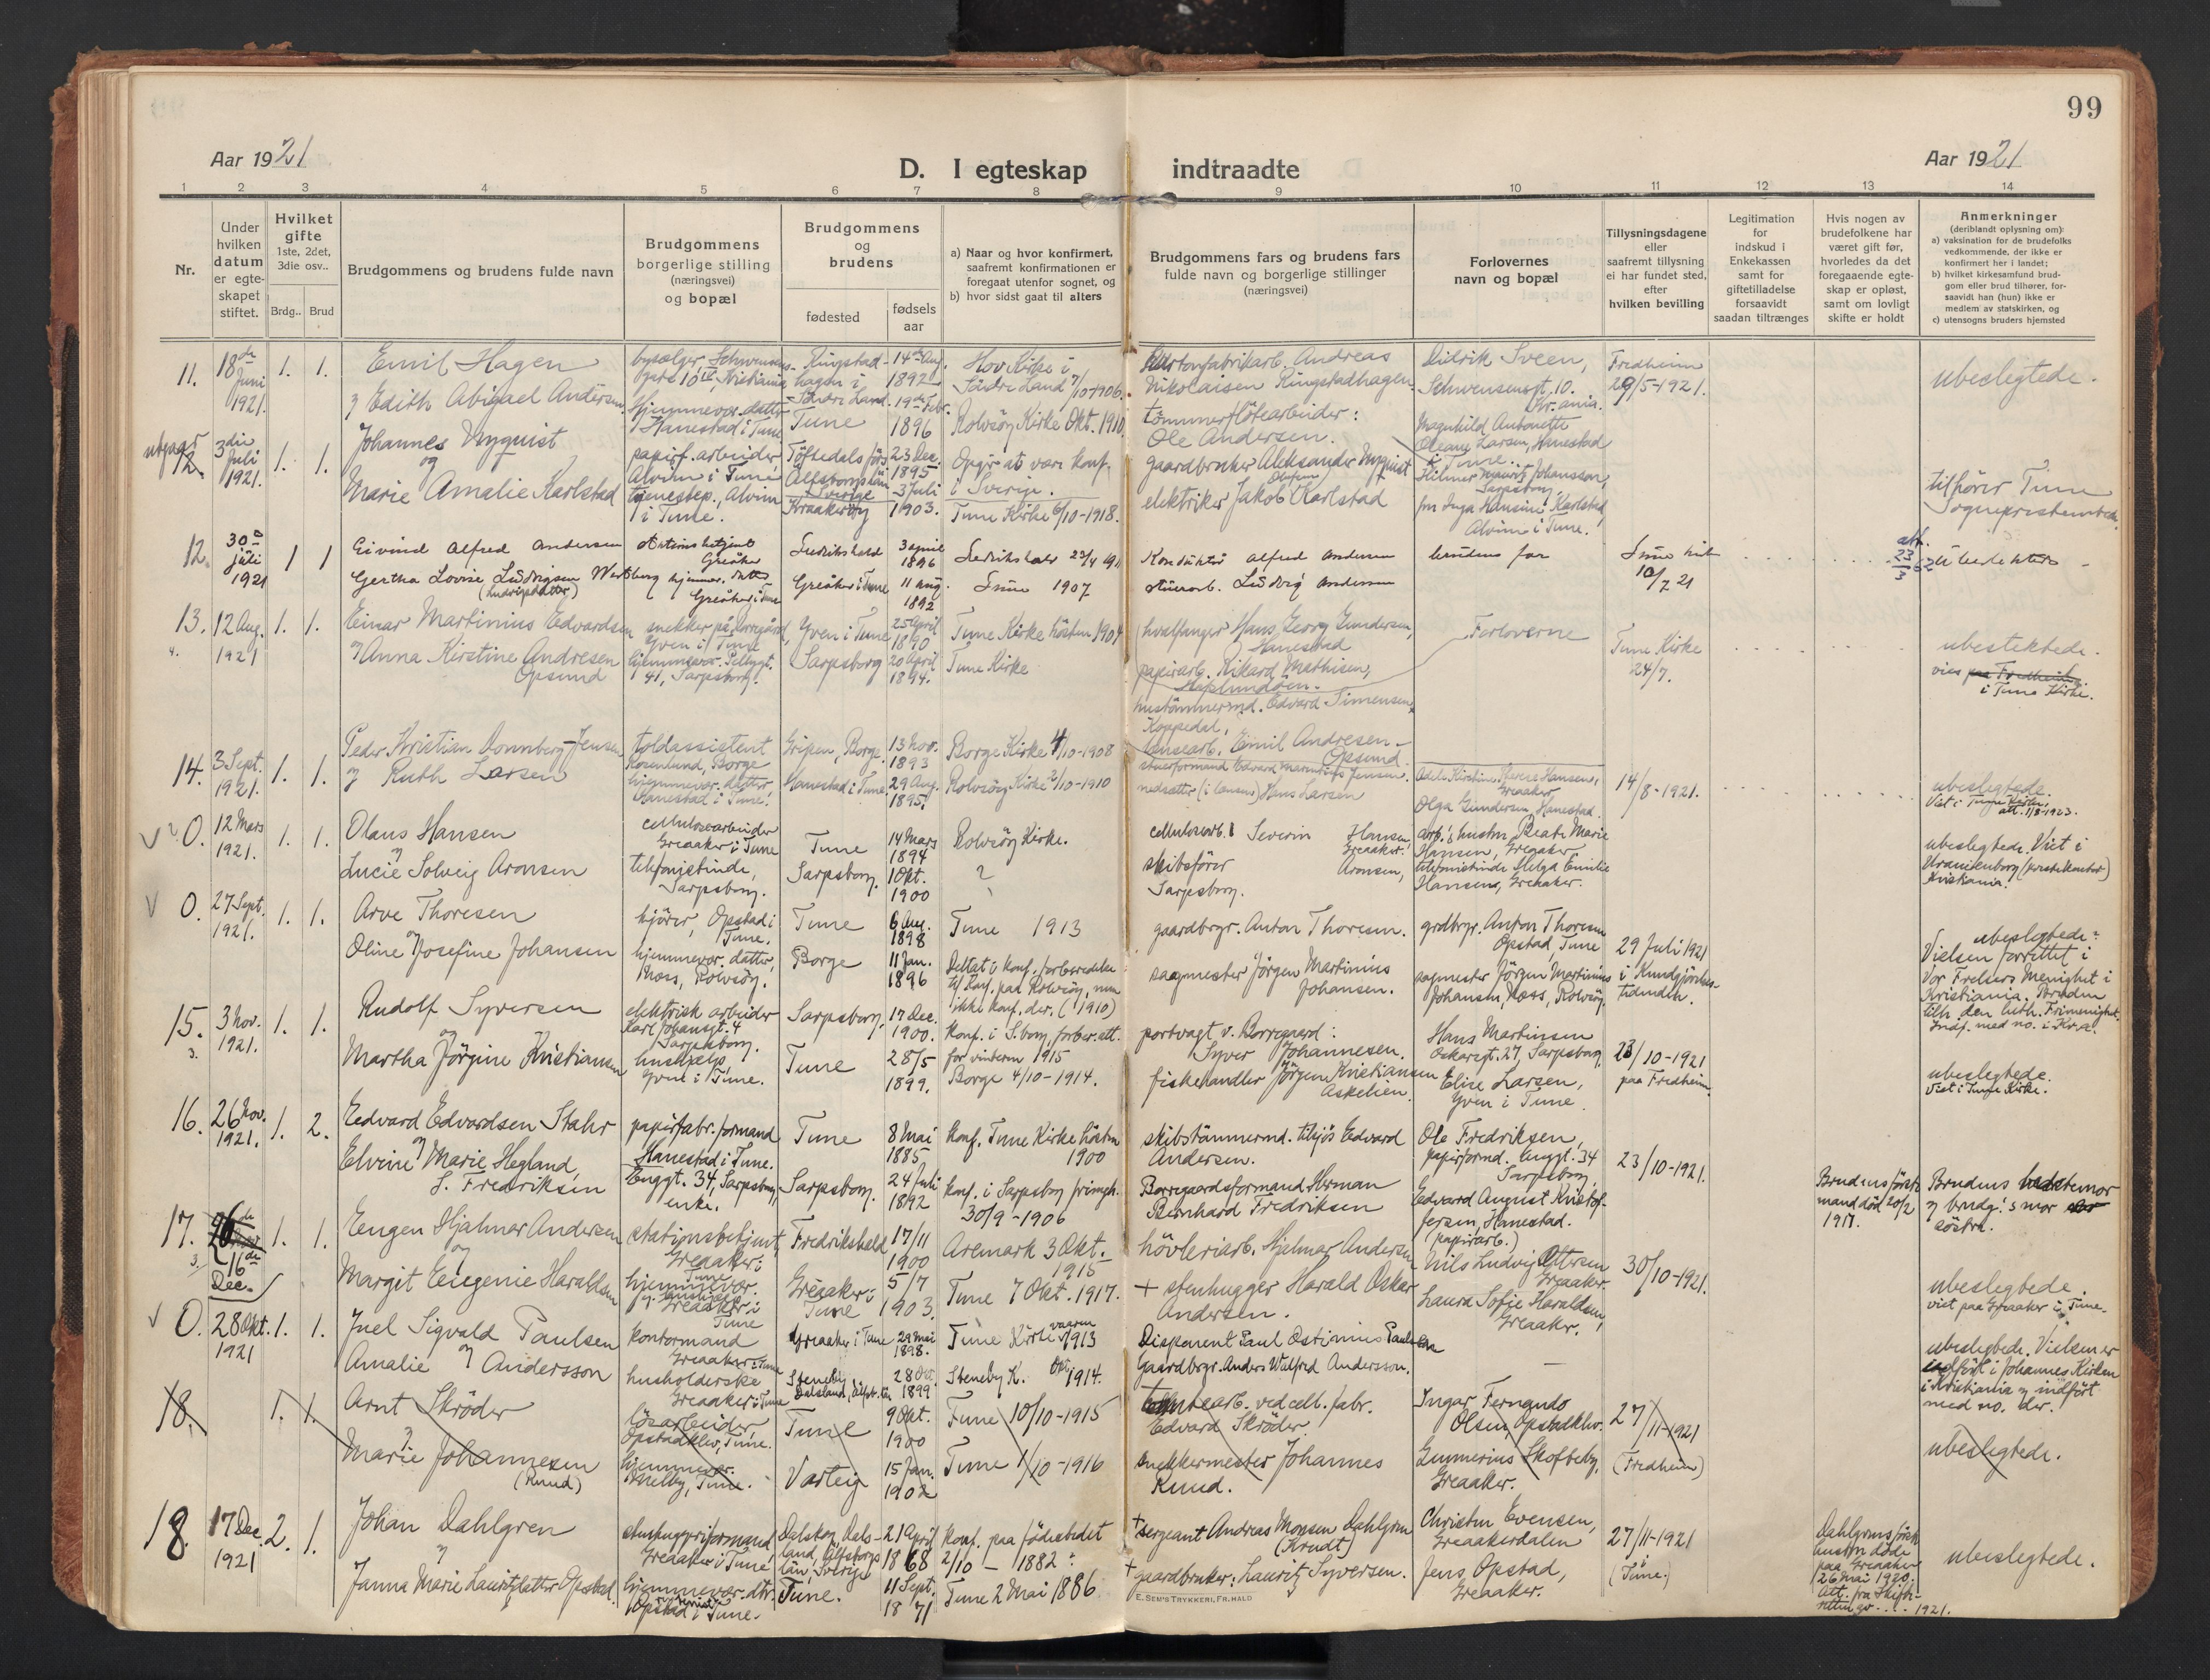 99
Aar 1921
D. I egteskap indtraadte
Aar 1921
1 2 3 4 5 6 7 8 9 10 11 12 13 14
Nr.
Under
hvilken
datum
er egte-
skapet
stiftet.
Hvilket
gifte
1ste, 2det,
3die osv..
Brdg.. Brud
Brudgommens og brudens fulde navn
Brudgommens
borgerlige stilling
(næringsvei)
og bopæl
Brudgommens
og
brudens
fødested
fødsels
aar
a) Naar og hvor konfirmert,
saafremt konfirmationen er
foregaat utenfor sognet, og
b) hvor sidst gaat til alters
Brudgommens fars og brudens fars
fulde navn og borgerlige stillinger
(næringsvei)
Forlovernes
navn og bopæl
Tillysningsdagene
eller
saafremt tillysning
ei har fundet sted,
efter
hvilken bevilling
Legitimation
for
indskud i
Enkekassen
samt for
giftetilladelse
forsaavidt
saadan tiltrænges
Hvis nogen av
brudefolkene har
været gift før,
hvorledes da det
foregaaende egte-
skap er opløst,
samt om lovligt
skifte er holdt
Anmerkninger
(deriblandt oplysning om):
a) vaksination for de brudefolks
vedkommende, der ikke er
konfirmert her i landet;
b) hvilket kirkesamfund brud-
gom eller brud tilhører, for-
saavidt han (hun) ikke er
medlem av statskirken, og
c) utensogns bruders hjemsted
11.
18de
Juni
1921.
1. 1.
Emil Hagen
og Edith Abigael Andersen
Hjemmevær. datter
Hanestad i Tune
Ringstad-
hagen i
Søndre Land.
Tune
14de Aug.
1892
19de Febr.
1896
Hov Kirke i
Søndre Land 7/10-1906.
Rolvsøy Kirke Okt. 1910
Kartonfabrikarb. Andreas
Nikolaisen Ringstadhagen
tømmerfløtearbeider:
Ole Andersen.
Didrik Sveen,
Schwensensgt. 10.
Kr.ania.
Magnhild Antonette
Oleane Larsen, Hanestad
i Tune.
Fredheim
29/5-1921.
ubeslegtede.
utgaar
12.
3die
Juli
1921.
1. 1.
Johannes Nyquist
og
Marie Amalie Karlstad
papirf. arbeider
Alvim i Tune
tjenestep., Alvim
i Tune.
Tøftedals förs.
Älfsborgs län
Sverige
Kraakerøy
23 Dec.
1895
3 Juli
1903.
Opgir at være konf.
i Sverige.
Tune Kirke 6/10-1918.
gaardbruker Aleksander Nyquist
elektriker Jakob Olufsen Karlstad
Hilmer Mauritz Johansson,
Sarpsborg
fru Inga Hansine Karlstad,
Alvim i Tune.
tilhører Tune
Sogneprestembede.
12.
30te
juli
1921
1 1
Eivind Alfred Andersen
Gertha Lovise Ludvigsen Westberg
(Ludvigsdatter)
Stationsbetjent
Greåker
hjemmev. datter
Greåker i Tune
Fredrikshald
Greåker i Tune
3 april
1896
11 aug.
1892
Tune 1907
Konduktør Alfred Andersen
stuerarb. Ludvig Andersen
brudens far
Tune kirke
10/7 21
13.
12 Aug.
1921
1. 1.
Einar Martinius Edvardsen
og Anna Kirstine Andresen
Opsund
snekker på Borregård,
Yven i Tune
hjemmevær. Pellygt.
41, Sarpsborg.
Yven i Tune
Sarpsborg
25 April
1890
20 April
1894.
Tune Kirke høsten 1904
Tune Kirke
hvalfanger Hans Georg Gundersen,
Hanestad
papirarb. Rikard Mathisen,
hustømmermd. Edvard Simensen,
Koppedal,
lensearb. Emil Andresen
Opsund
Forloverne
Tune Kirke
24/7.
ubeslektede.
vies paa Fredheim
i Tune Kirke.
14.
3 Sept.
1921.
1. 1.
Peder Kristian Donnberg-Jensen
og Ruth Larsen
toldassistent
Rosenlund, Borge
hjemmevær. datter,
Hanestad i Tune.
Gripen, Borge.
Hanestad i Tune.
13 Nov.
1893
29 Aug.
1895
Borge Kirke 4/10-1908
Rolvsøy Kirke 2/10-1910
stuerformand Edvard Marentius Jensen.
nedsætter (i lensen) Hans Larsen
Greaaker,
Olga Gundersen, Hanestad.
14/8-1921.
ubeslegtede.
Viet i Tune Kirke.
att. 1/8-1923.
0.
12 Mars
1921.
1. 1.
Olaus Hansen
og
Lucie Solveig Aronsen
cellulosearbeider
Greaaker i Tune
telefonistinde,
Sarpsborg.
Tune
Sarpsborg.
14 Mars
1894
1 Okt.
1900
Rolvsøy Kirke.
?
cellulosearb. Severin Hansen,
Greaaker.
skibsfører Aronsen,
Sarpsborg.
arb.'s hustru Beate Marie
Hansen, Greaaker
telefonistinde Helga Emilie
Hansen, Greaaker.
ubeslegtede. Viet i
Uranienborg (prestekontor)
Kristiania.
0.
27 Sept.
1921.
1. 1.
Arve Thoresen
og
Oline Josefine Johansen
kjører, Opstad i
Tune.
hjemmevær. datter,
Moss, Rolvsøy.
Tune
Borge
6 Aug.
1898
11 Jan.
1896
Tune 1913
Deltat i konf. forberedelse
til konf. paa Rolvsøy, men
ikke konf. der. (1910)
gaardbrgr. Anton Thoresen.
sagmester Jørgen Martinius
Johansen.
grdbrgr. Anton Thoresen
Opstad, Tune
sagmester Jörgen Martinius
Johansen, Moss, Rolvsøy.
29 Juli 1921
i Kundgjörelses-
tidenden.
ubeslegtede.
Vielsen forrettet i
Vor Frelsers Menighet i
Kristiania. Bruden
tilh. den luth. Frimenighet.
Indf. med no. i Kr.a.
15.
3 Nov.
1921.
1. 1.
Rudolf Syversen
og
Martha Jørgine Kristiansen
elektrisk arbeider
Karl Johansgt. 4
Sarpsborg.
hushjelp
Yven i Tune.
Sarpsborg.
Tune
17 Dec.
1900.
28/5
1899.
Konf. i S.borg, forber. att.
for vinteren 1915
Borge 4/10-1914.
portvagt v. Borregaard:
Syver Johannesen.
fiskehandler Jörgen Kristiansen
Askelien.
Hans Martinsen
Oskarsgt. 27, Sarpsborg.
Elise Larsen,
Yven i Tune.
23/10-1921
paa Fredheim
ubeslegtede.
Viet i Tune Kirke.
16.
26 Nov.
1921.
1. 2.
Edvard Edvardsen Stahr
og
Elvine Marie Hegland,
f. Fredriksen
papirfabr. formand
Hanestad i Tune.
Enggt. 34, Sarpsborg,
enke.
Tune
Sarpsborg.
8 Mai
1885
24 Juli
1892
Konf. Tune Kirke høsten
1900
Konf. i Sarpsborg
30/9-1906
skibstömmermd. tilsjös Edvard
Andersen.
Borregaardsformand Herman
Bernhard Fredriksen
Ole Fredriksen,
papirformd. Enggt. 34
Sarpsborg,
Edvard August Kristof-
fersen, Hanestad.
(papirarb.)
23/10-1921.
Brudens første
mand død 20/2
1917.
Brudens bestemor
og brudg.'s mor
søstre.
17.
16de
Dec.
1. 1.
Eugen Hjalmar Andersen
og
Margit Eugenie Haraldsen
stationsbetjent
Greaaker i
Tune
hjemmevær.
Greaaker i
Tune
Fredrikshald
Greaaker i
Tune
17/11
1900
5/7
1903.
Aremark 3 Okt.
1915
Tune 7 Okt. 1917.
hövleriarb. Hjalmar Andersen
+ stenhugger Harald Oskar
Andersen.
Nils Ludvig Ottersen
Greaaker.
Laura Sofie Haraldsen,
Greaaker.
30/10-1921.
ubeslegtede.
viet paa Greaaker i Tune.
0.
28 Okt.
1921
1. 1.
Juel Sigvald Paulsen
og
Amalie Andersson
kontormand
Greaaker i Tune
husholderske
Greaaker i Tune
Greaaker i Tune
Steneby
Dalsland,
29 mai
1898.
28
1899
Tune Kirke vaaren 1913
Steneby K. Okt 1914.
Disponent Paul Østinius Paulsen
Gaardbrgr. Anders Walfred Andersson.
—
ubeslegtede. Vielsen er
utført i Johannes Kirken
i Kristiania og indført
med no. der.
18.
1. 1.
Arnt Skrøder
og
Marie Johannesen
(Ruud)
løsarbeider,
Opstadklev, Tune.
hjemmevær.
Tune.
Tune
Varteig
9 Okt.
1900
15 Jan.
1902
Tune 10/10-1915
Tune 1/10-1916
tomtearb. ved cell. fabr.
Edvard Skrøder.
snekkermester Johannes
Ruud.
Ingar Fernando
Olsen, Opstadklev.
Gunnerius Skofteby,
Greaaker.
27/11-1921
(Fredheim)
ubeslegtede.
18.
17 Dec.
1921
2. 1.
Johan Dahlgren
og
Janna Marie Lauritzdatter Opstad.
stenhuggerformand
Greaaker i Tune
hjemmevær. dtr.
Opstad i Tune.
Dalskog, Dals-
land, Älfsborgs
län, Sverige
Tune.
21 April
1868
11 Sept.
1871
Konf. paa fødestedet
2/10 - 1882
Tune 2 Mai 1886
+ sergeant Andreas Monsen Dahlgren
(Krudt)
+ gaardbruker: Lauritz Syversen.
Christen Evensen,
Greaakerdalen
Jens Opstad,
Greaaker.
27/11-1921
(Tune.)
Dahlgrens første
hustru døde
paa Greaaker
26 Mai 1920.
Att. fra Skifte-
retten av ... 1921.
ubeslegtede.
E. SEM'S TRYKKERI, FR.HALD